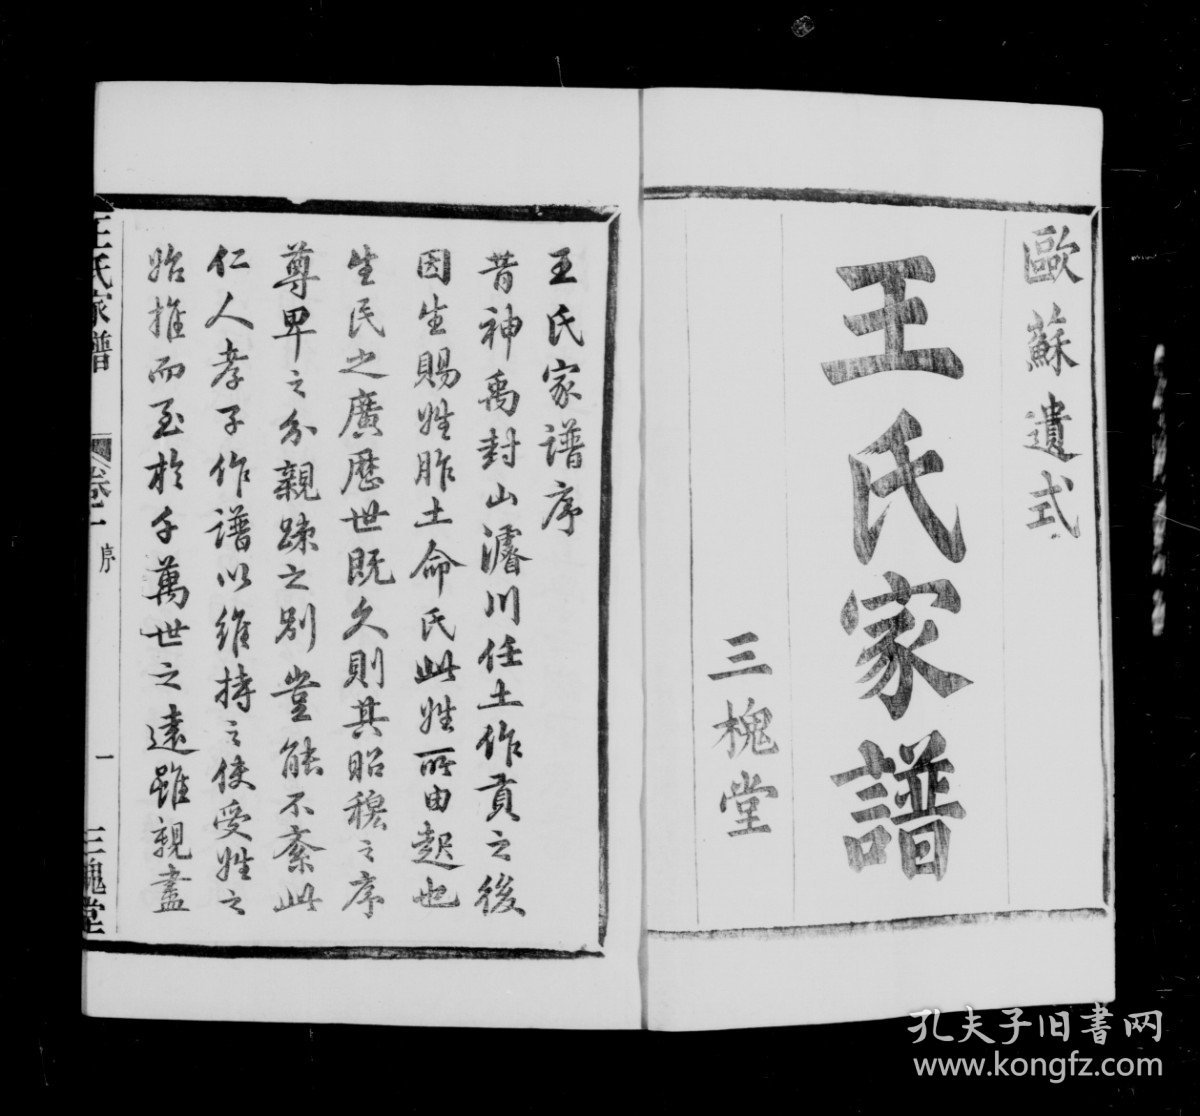 歐蘇遺式
王氏家譜
三槐堂
王氏家譜序
昔神禹封山濬川任土作貢之後
因生賜姓胙土命氏此姓所由起也
生民之廣歷世既久則其昭穆之序
尊卑之分親疎之別豈能不紊此
仁人孝子作譜以維持之使受姓之
始推而至於千萬世之遠雖親盡
王氏家譜
卷一 序
一
三槐堂
孔夫子旧書网
www.kongfz.com